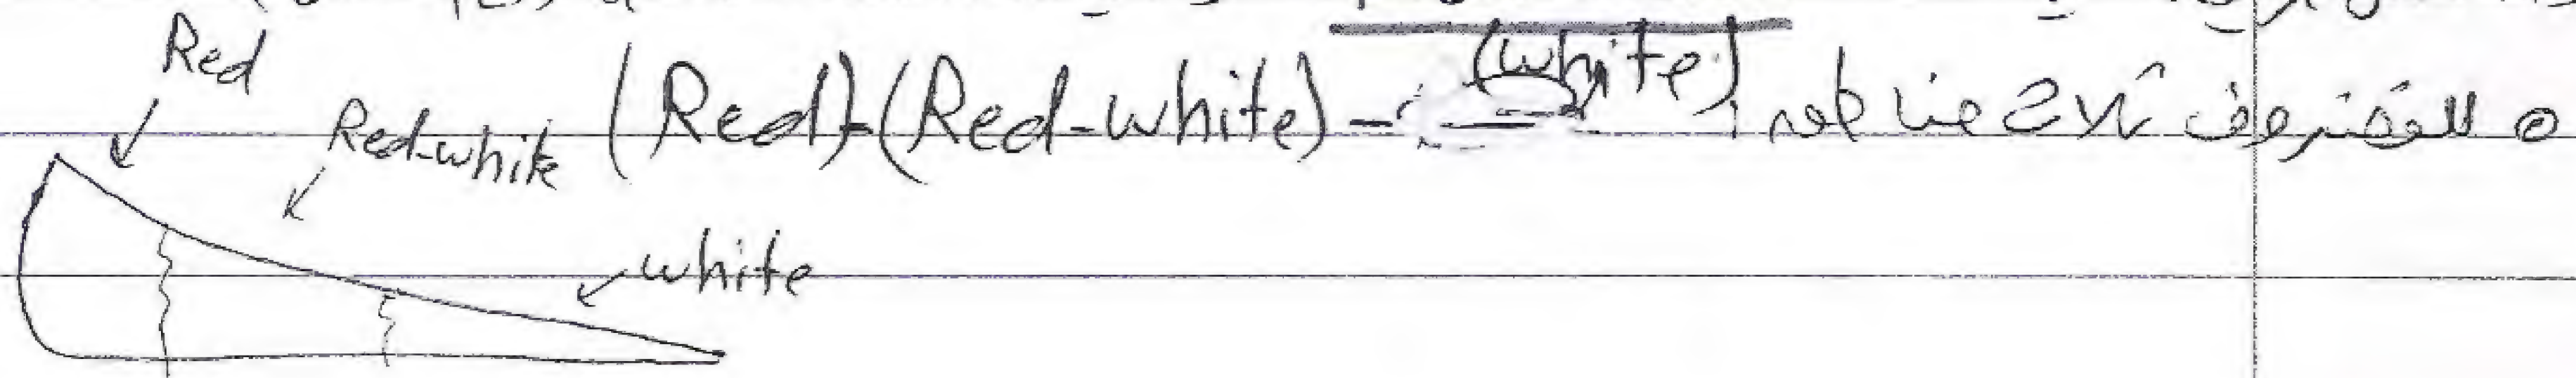 للغضروف ثلاث مناطق (Red)-(Red-white)-(white)
Red
Red-white
white